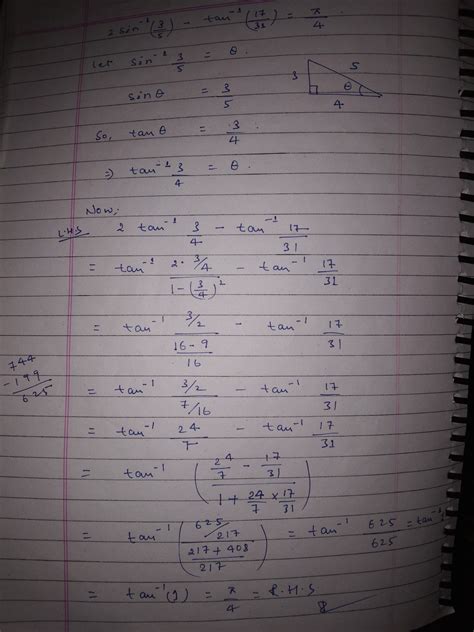 2 sin⁻¹(3/5) − tan⁻¹(17/31) = π/4
let sin⁻¹ 3/5 = θ.
sinθ = 3/5
3 5 θ 4
So, tanθ = 3/4.
⇒ tan⁻¹ 3/4 = θ.
Now,
L.H.S 2 tan⁻¹ 3/4 − tan⁻¹ 17/31
= tan⁻¹ (2·3/4)/(1−(3/4)²) − tan⁻¹ 17/31
= tan⁻¹ (3/2)/((16−9)/16) − tan⁻¹ 17/31
744
−199
625
= tan⁻¹ (3/2)/(7/16) − tan⁻¹ 17/31
= tan⁻¹ 24/7 − tan⁻¹ 17/31
= tan⁻¹ ((24/7 − 17/31)/(1 + 24/7 × 17/31))
= tan⁻¹ ((625/217)/((217+408)/217)) = tan⁻¹ 625/625 = tan⁻¹
= tan⁻¹(1) = π/4 = R.H.S